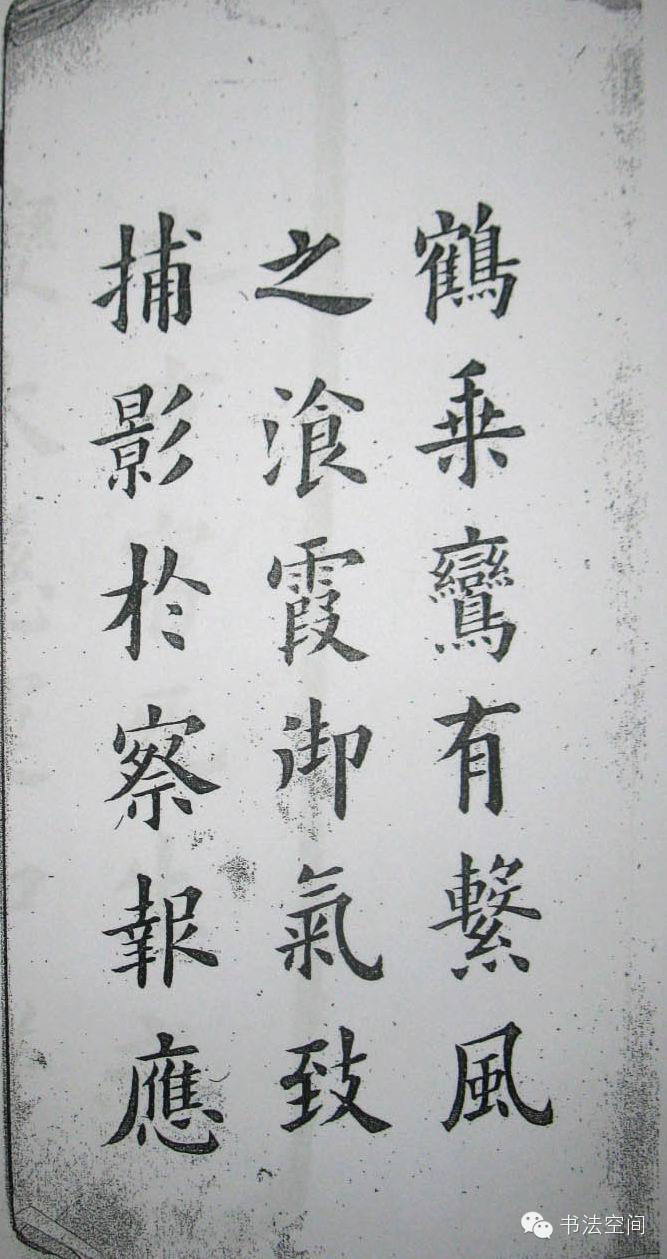 鶴乗鸞有繫風
之飡霞御氣致
捕影於察報應
书法空间